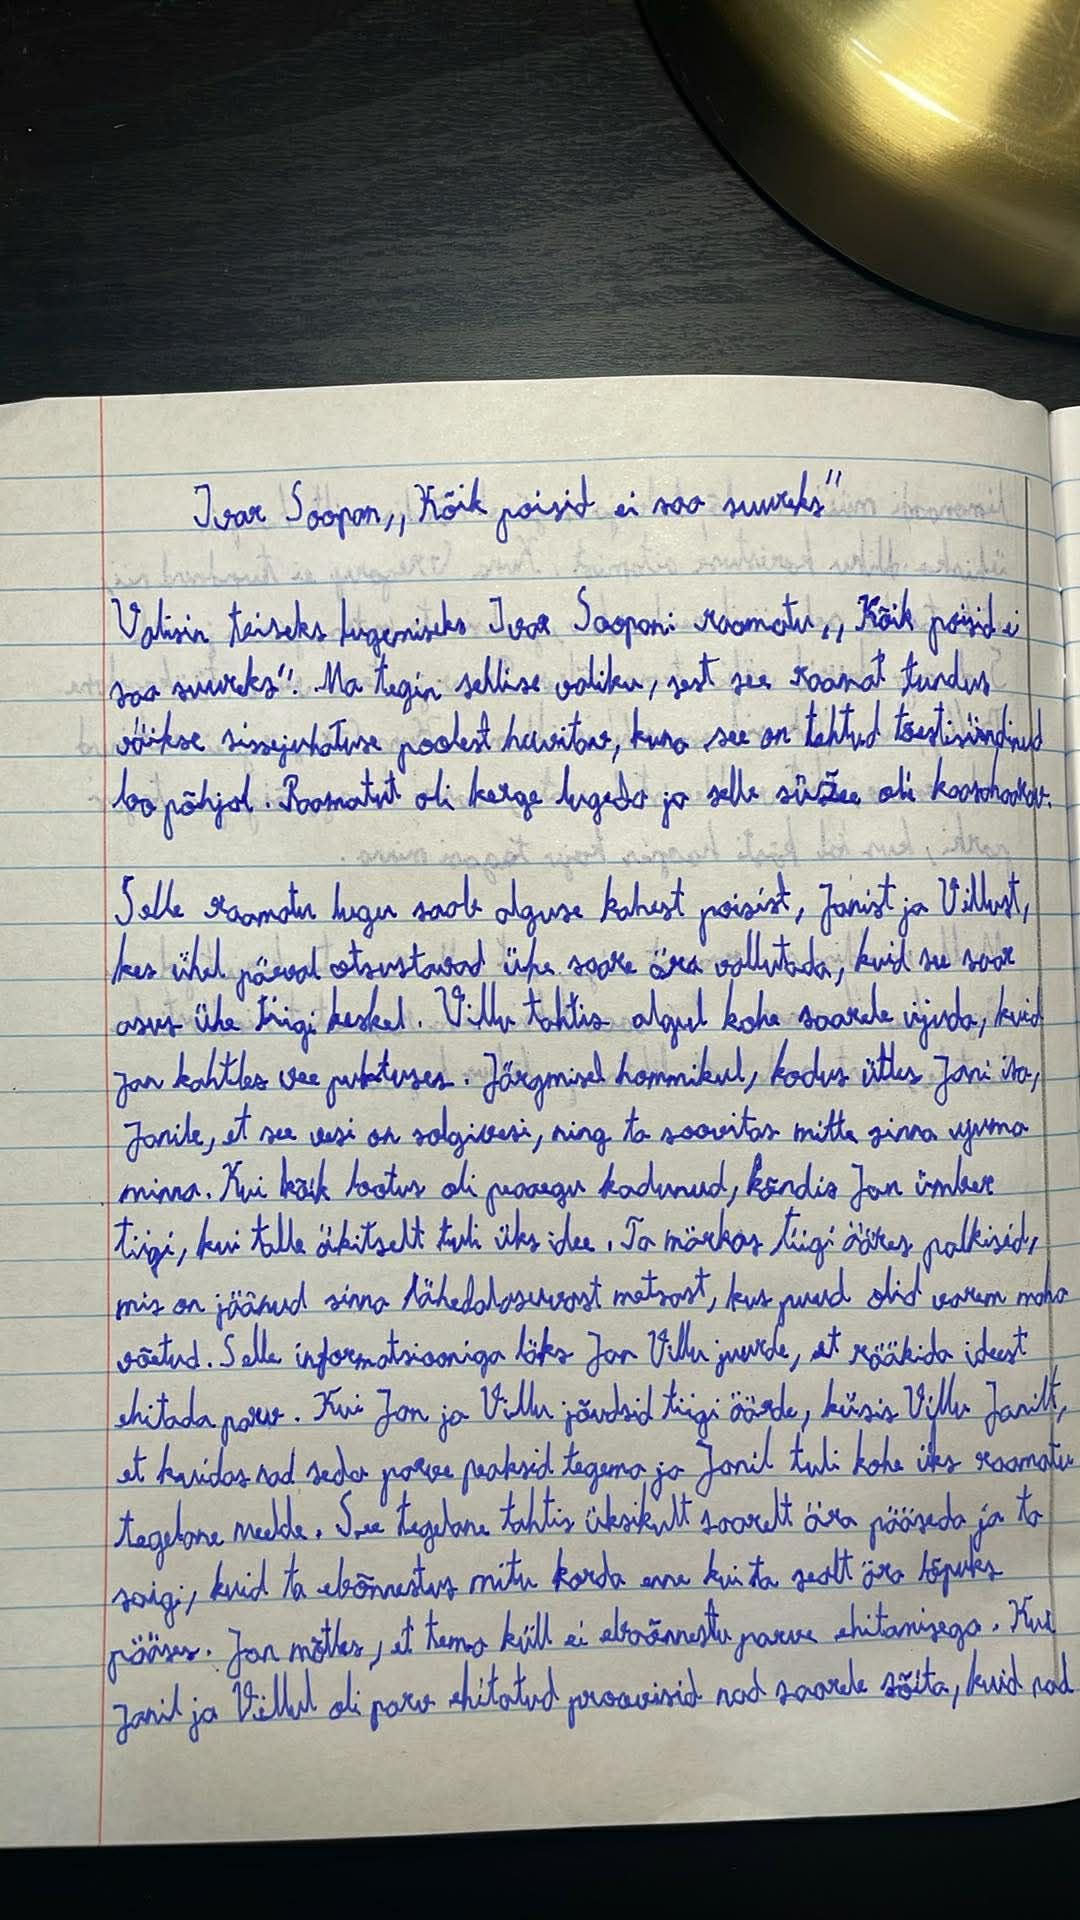 Ivar Soopan „Kõik poisid ei saa suureks"
Valisin teiseks lugemiseks Ivar Soopani raamatu „Kõik poisid ei
saa suureks". Ma tegin sellise valiku, sest see raamat tundus
väikse sissejuhatuse poolest huvitav, kuna see on tehtud tõestisündinud
loo põhjal. Raamatut oli kerge lugeda ja selle süžee oli kaasahaarav.
Selle raamatu lugu saab alguse kahest poisist, Janist ja Villust,
kes ühel päeval otsustavad ühe saare ära vallutada, kuid see saar
asus ühe tiigi keskel. Villu tahtis algul kohe saarele ujuda, kuid
Jan kahtles vee puhtuses. Järgmisel hommikul, kodus ütles Jani isa,
Janile, et see vesi on solgivesi, ning ta soovitas mitte sinna ujuma
minna. Kui kõik lootus oli peaaegu kadunud, kõndis Jan ümber
tiigi, kui talle äkitselt tuli üks idee. Ta märkas tiigi ääres palkisid,
mis on jäänud sinna lähedalasuvast metsast, kus puud olid varem maha
võetud. Selle informatsiooniga läks Jan Villu juurde, et rääkida ideest
ehitada parv. Kui Jan ja Villu jõudsid tiigi äärde, küsis Villu Janilt,
et kuidas nad seda parve peaksid tegema ja Janil tuli kohe üks raamatu
tegelane meelde. See tegelane tahtis üksikult saarelt ära pääseda ja ta
saigi, kuid ta ebõnnestus mitu korda enne kui ta sealt ära lõpuks
pääses. Jan mõtles, et tema küll ei ebaõnnestu parve ehitamisega. Kui
Janil ja Villul oli parv ehitatud proovisid nad saarele sõita, kuid nad